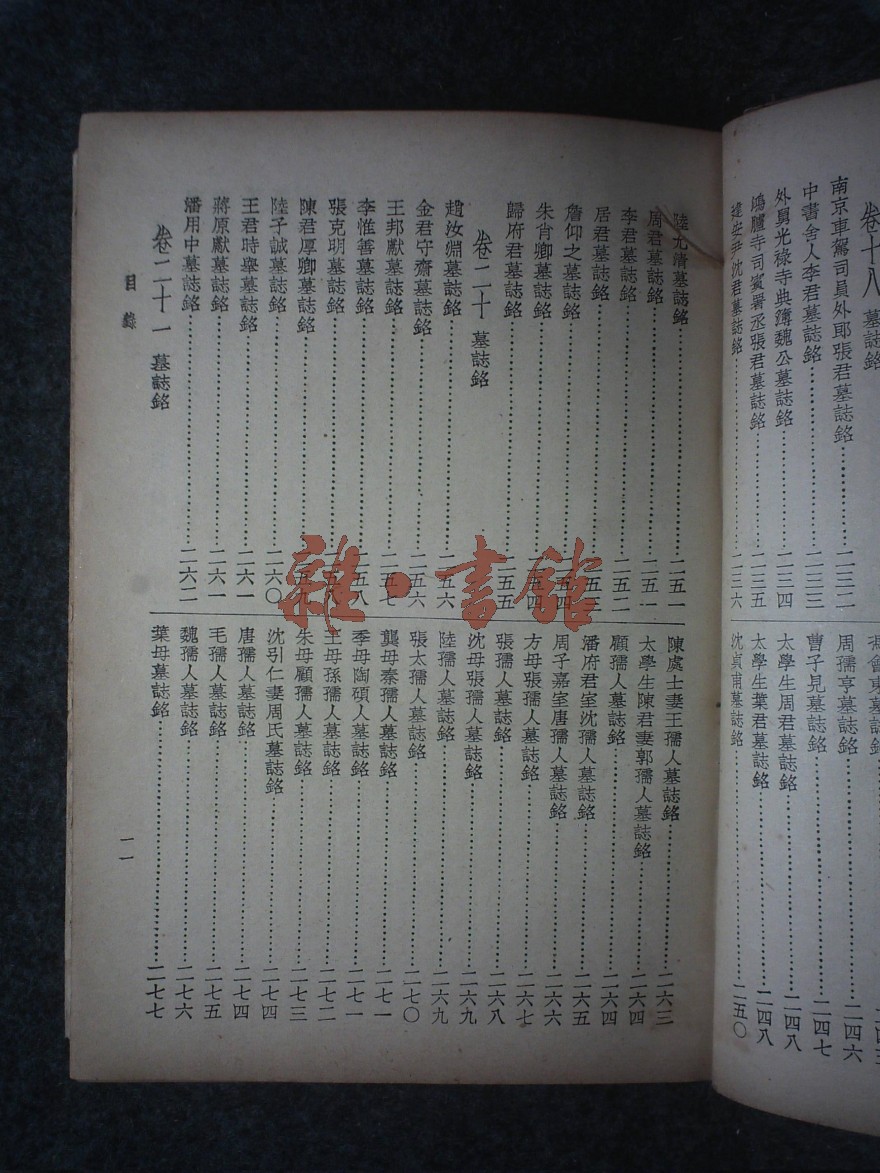 卷十八 墓誌銘
南京車駕司員外郎張君墓誌銘……二三二
中書舍人李君墓誌銘……二三三
外舅光祿寺典簿魏公墓誌銘……二三四
鴻臚寺司賓署丞張君墓誌銘……二三五
建安尹沈君墓誌銘……二三六
周孺亨墓誌銘……二四六
曹子見墓誌銘……二四七
太學生周君墓誌銘……二四八
太學生葉君墓誌銘……二四八
沈貞甫墓誌銘……二五〇
陸允清墓誌銘……二五一
周君墓誌銘……二五一
李君墓誌銘……二五二
居君墓誌銘……二五三
詹仰之墓誌銘……二五四
朱肖卿墓誌銘……二五四
歸府君墓誌銘……二五五
卷二十 墓誌銘
趙汝淵墓誌銘……二五六
金君守齋墓誌銘……二五六
王邦獻墓誌銘……二五七
李惟善墓誌銘……二五八
張克明墓誌銘……二五八
陳君厚卿墓誌銘……二五九
陸子誠墓誌銘……二六〇
王君時舉墓誌銘……二六一
蔣原獻墓誌銘……二六一
潘用中墓誌銘……二六二
卷二十一 墓誌銘
陳處士妻王孺人墓誌銘……二六三
太學生陳君妻郭孺人墓誌銘……二六四
顧孺人墓誌銘……二六四
潘府君室沈孺人墓誌銘……二六五
周子嘉室唐孺人墓誌銘……二六六
方母張孺人墓誌銘……二六七
張孺人墓誌銘……二六八
沈母張孺人墓誌銘……二六九
陸孺人墓誌銘……二六九
張太孺人墓誌銘……二七〇
龔母秦孺人墓誌銘……二七一
季母陶碩人墓誌銘……二七一
王母孫孺人墓誌銘……二七二
朱母顧孺人墓誌銘……二七三
沈引仁妻周氏墓誌銘……二七四
唐孺人墓誌銘……二七四
毛孺人墓誌銘……二七五
魏孺人墓誌銘……二七六
葉母墓誌銘……二七七
目錄
一一
雜·書館